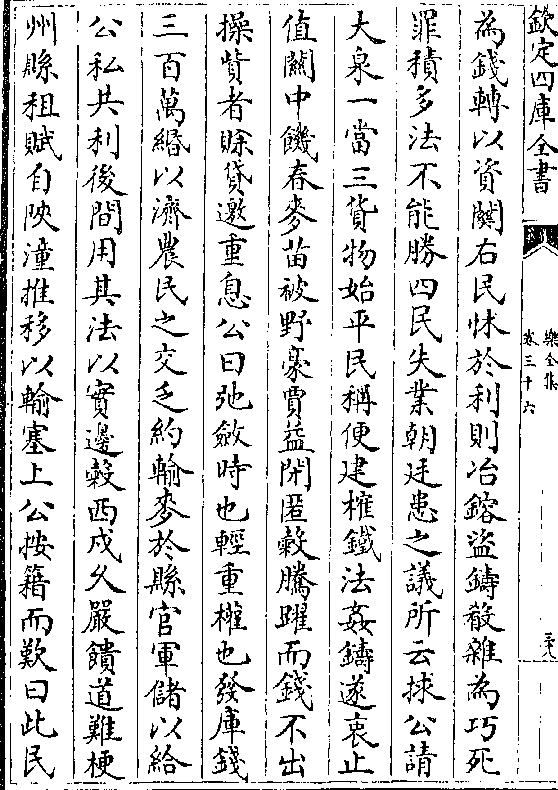 欽定四庫全書
樂全集
卷三十六
三十八
為錢轉以資關右民怵於利則冶鎔盜鑄殽雜為巧死
罪積多法不能勝四民失業朝廷患之議所云捄公請
大泉一當三貨物始平民稱便建榷鐵法姦鑄遂衰止
值關中饑春麥苗被野豪賈益閉匿穀騰躍而錢不出
操貲者賒貸邀重息公曰弛斂時也輕重權也發庫錢
三百萬緡以濟農民之交乏約輸麥於縣官軍儲以給
公私共利後間用其法以實邊穀西戍久嚴饋道難梗
州縣租賦自陜潼推移以輸塞上公按籍而歎曰此民